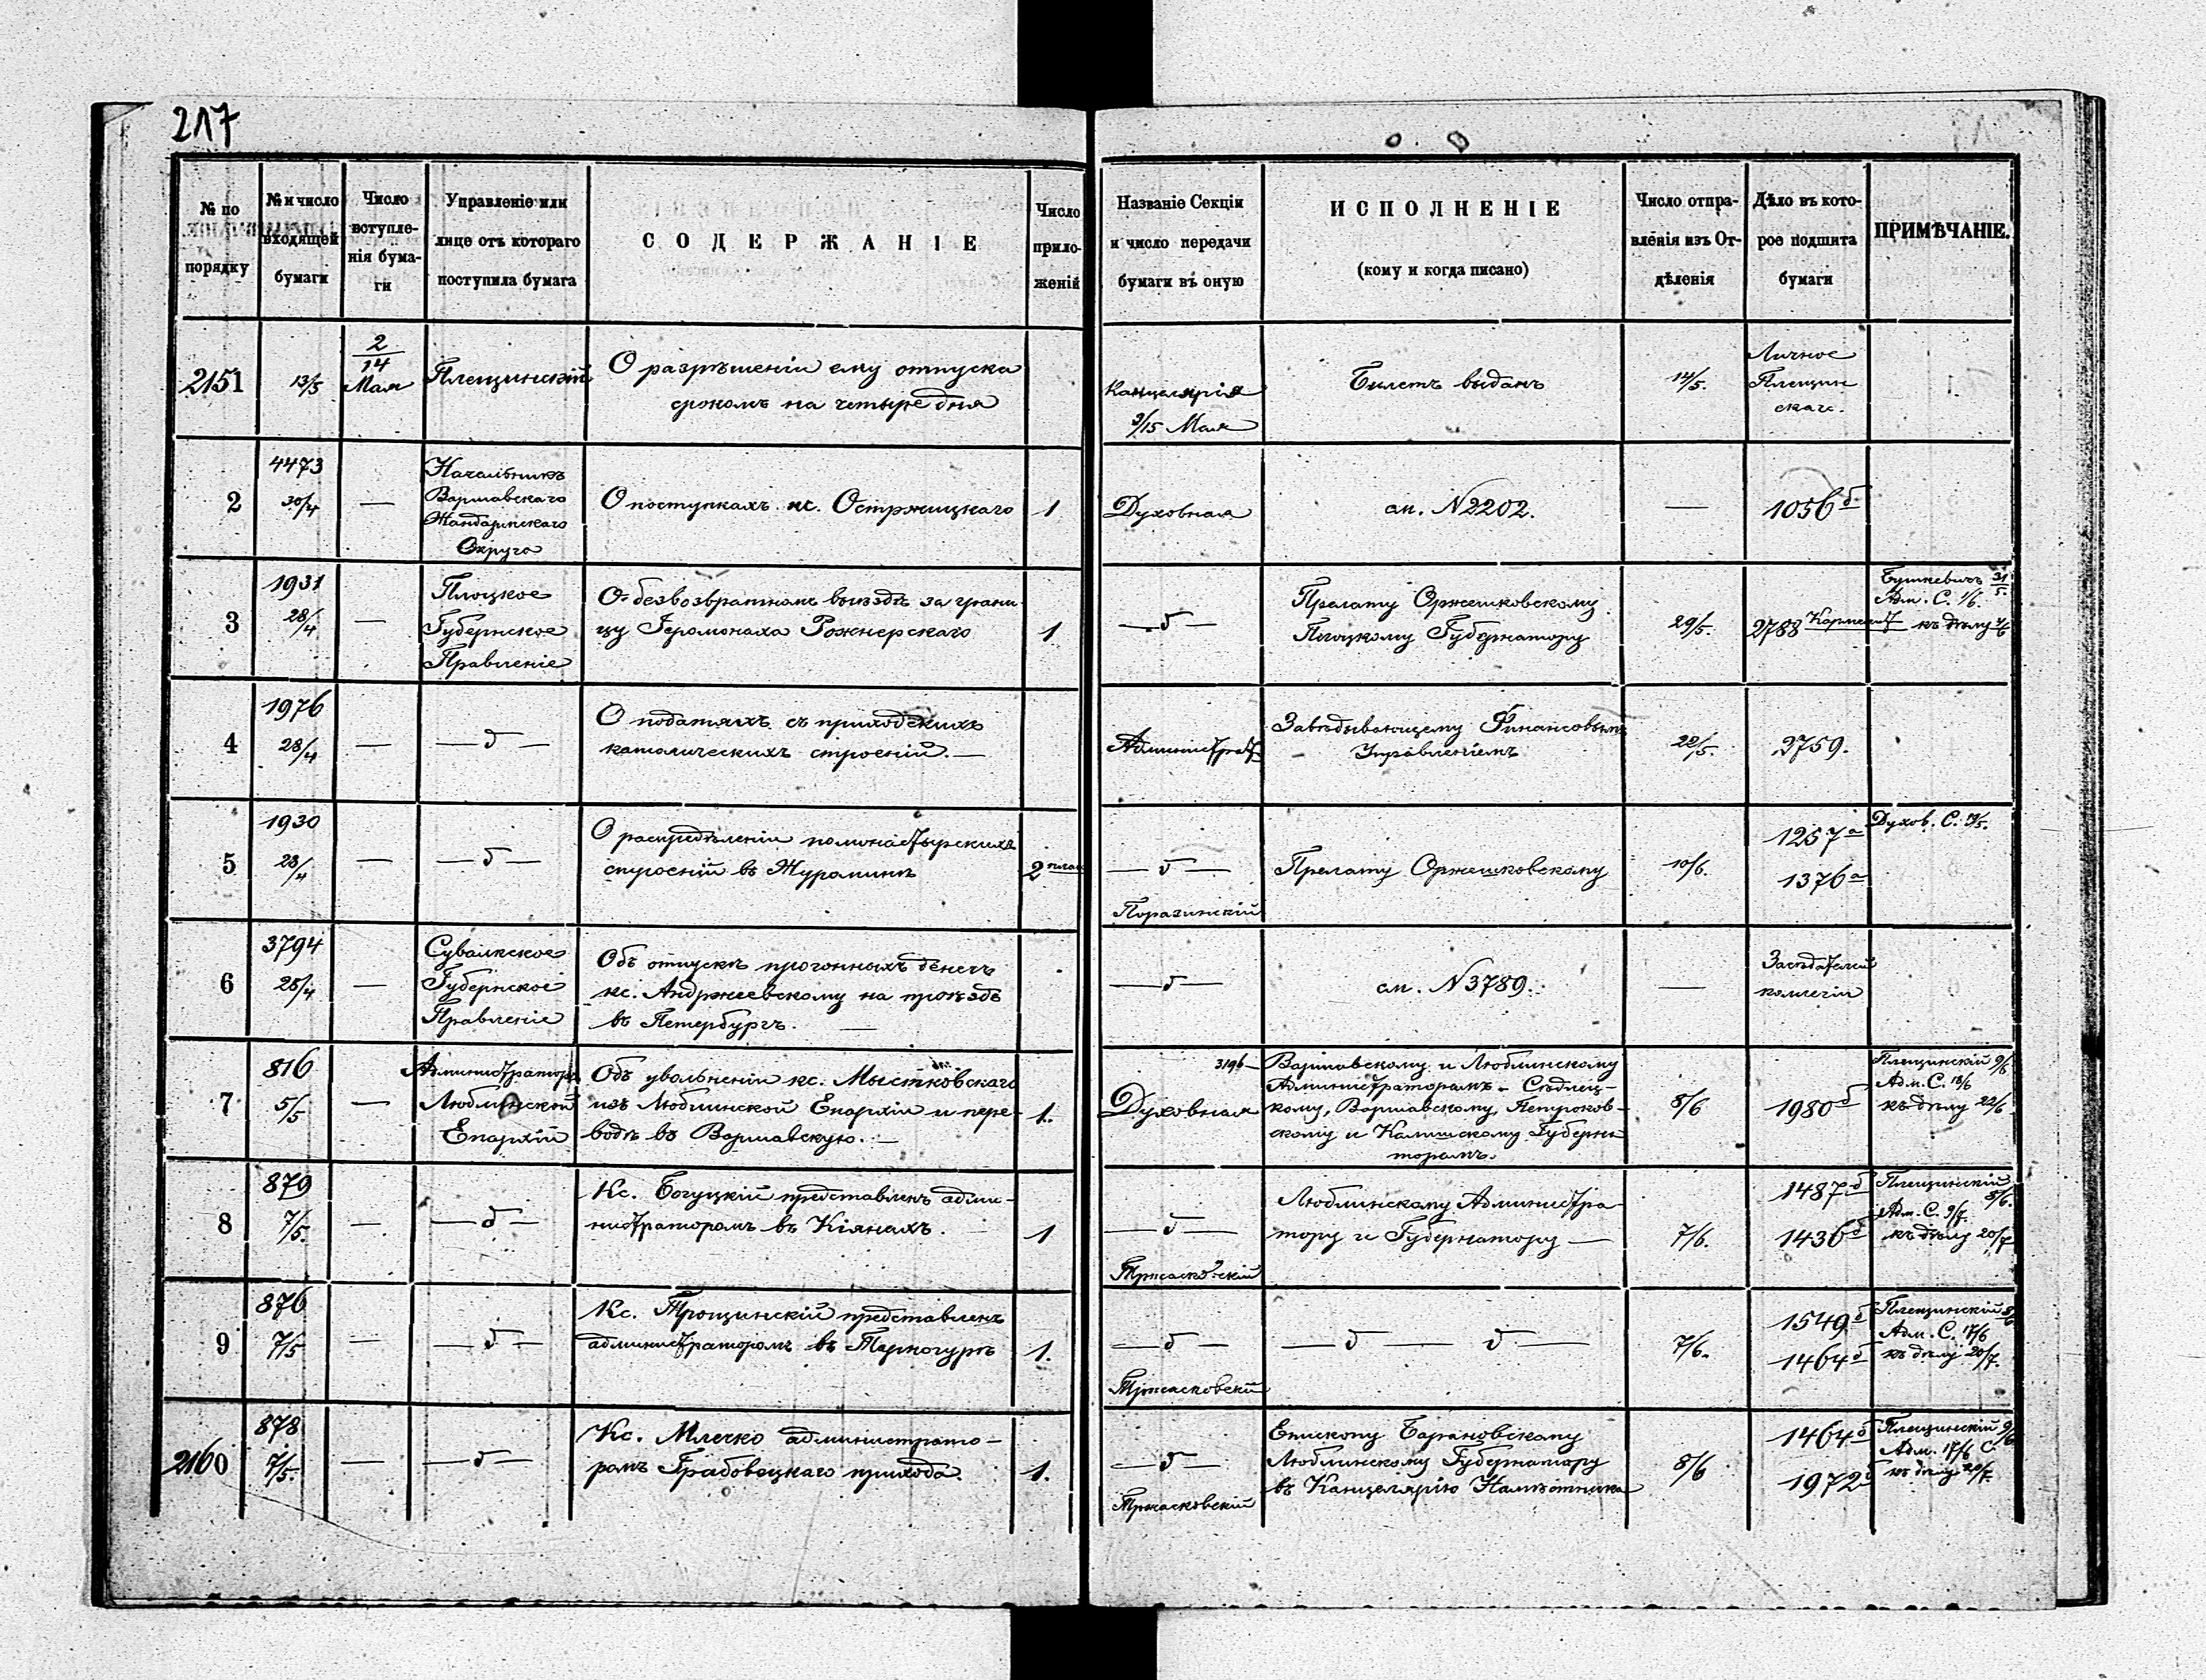 217
№ по порядку
№ и число входящей бумаги
Число вступленія бумаги
Управленіе или лице отъ котораго поступила бумага
СОДЕРЖАНІЕ
Число приложеній
Названіе Секціи и число передачи бумаги въ оную
ИСПОЛНЕНІЕ
(кому и когда писано)
Число отправленія изъ Отдѣленія
Дѣло въ которое подшита бумаги
ПРИМѢЧАНІЕ.
2151
13/5
2/14
Мая
Плещинскій
О разрѣшеніи ему отпуска
срокомъ на четыре дня
Канцелярія
3/15 Мая
Билетъ выданъ
14/5.
Личное
Плещин
скаго.
2
4473
30/4
—
Начальникъ
Варшавскаго
Жандармскаго
Округа
О поступкахъ кс. Остржицкаго
1
Духовная
см. N 2202.
—
1056 б
3
1931
28/4
—
Плоцкое
Губернское
Правленіе
О безвозвратномъ выѣздѣ за грани-
цу Іеромонаха Рожнерскаго
1
— б —
Прелату Оржешковскому
Плоцкому Губернатору
29/5.
2788
Бушкевичъ 31/5
Адм. С. 1/6.
къ дѣлу 4/6
4
1976
28/4
—
— б —
О податяхъ съ приходскихъ
католическихъ строеній. —
Администрат
Завѣдывающему Финансовымъ
Управленіемъ
22/5.
2759.
5
1930
28/4
—
— б —
О распредѣленіи помонастырскихъ
строеній въ Журоминѣ
2 план
— б —
Поразинскій
Прелату Оржешковскому
10/6.
1257 а
1376 а
Духов. С.
6
3794
28/4
—
Сувалкское
Губернское
Правленіе
Объ отпускѣ прогонныхъ денегъ
кс. Андржеевскому на проѣздъ
въ Петербургъ. —
— б —
см. N 3789.
—
Засѣдателей
коллегіи
7
816
5/5
—
Администраторъ
Люблинской
Епархіи
Объ увольненіи кс. Мыстковскаго
изъ Люблинской Епархіи и пере-
водѣ въ Варшавскую. —
1.
3196 —
Духовная
Варшавскому и Люблинскому
Администраторамъ – Сѣдлец-
кому, Варшавскому, Петроков-
скому и Калишскому Губерна-
торамъ.
8/6
1980 б
Плещинскій 9/6
Адм. С. 18/6
къ дѣлу 22/6
8
879
7/5.
—
— б —
Кс. Богуцкій представленъ адми-
нистраторомъ въ Кіянахъ.
1
— б —
Тржасковскій
Люблинскому Администра-
тору и Губернатору —
7/6.
1487 б
1436 б
Плещинскій 8/6.
Адм. С. 9/7.
къ дѣлу 20/7
9
876
7/5
—
— б —
Кс. Трощинскій представленъ
администраторомъ въ Тарногурѣ
1.
— б —
Тржасковскій
— б — б —
7/6.
1549 б
1464 б
Плещинскій 8/6
Адм. С. 17/6
къ дѣлу 20/7.
2160
878
7/5.
—
— б —
Кс. Млечко администрато-
ромъ Грабовецкаго прихода.
1.
— б —
Тржасковскій
Епископу Барановскому
Люблинскому Губернатору
въ Канцелярію Намѣстника
8/6
1464 б
1972 б
Плещинскій 9/6
Адм. 17/6 С
къ дѣлу 20/7